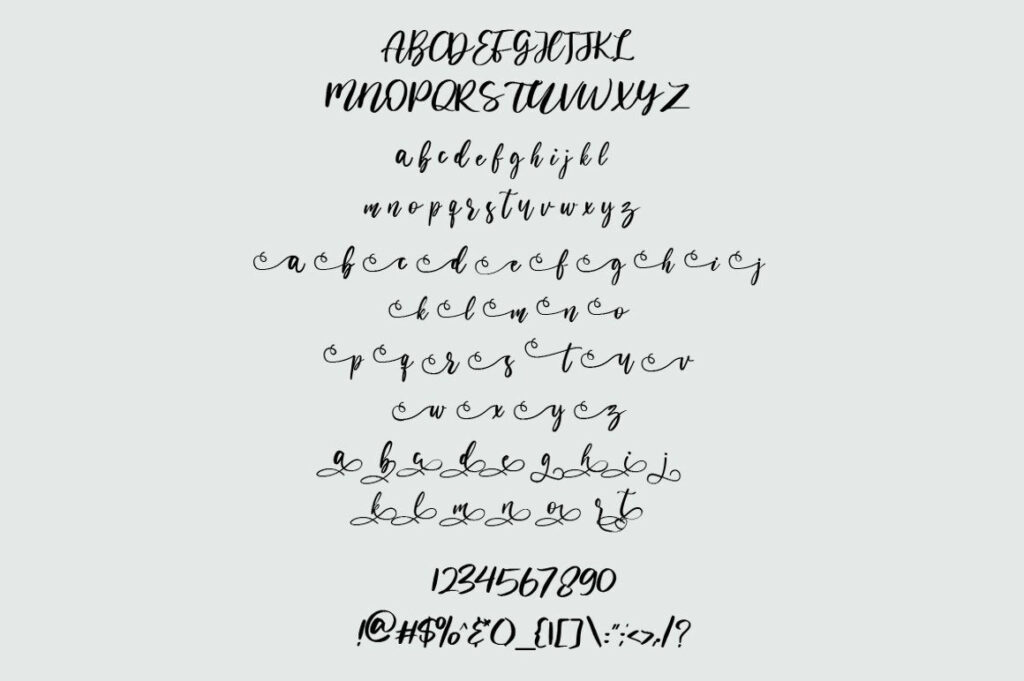 ABCDEFGHIJKL
MNOPQRSTUVWXYZ
abcdefghijkl
mnopqrstuvwxyz
a b c d e f g h i j
k l m n o
p q r s t u v
w x y z
a b c d e g h i j
k l m n o r t
1234567890
!@#$%^&*()_{|[]\:";'<>,./?